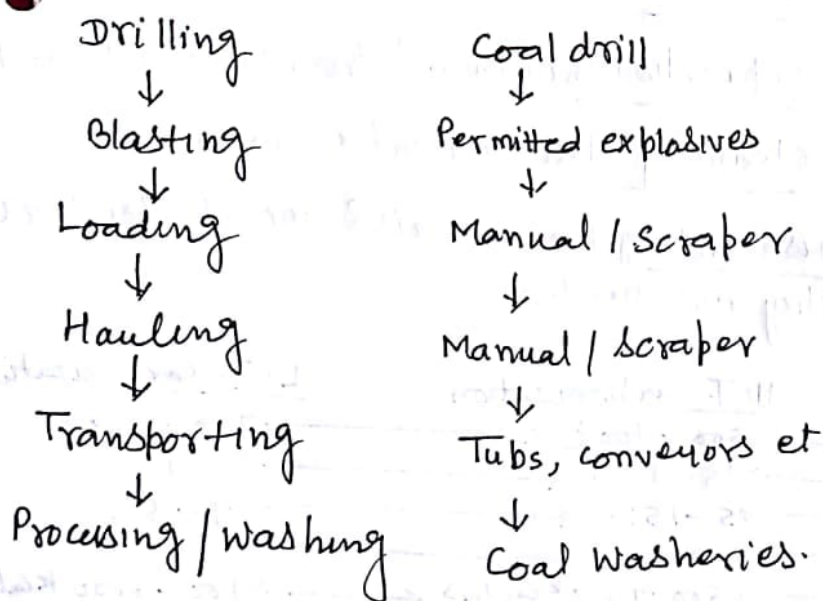 Drilling
↓
Blasting
↓
Loading
↓
Hauling
↓
Transporting
↓
Processing / washing
Coal drill
↓
Permitted explosives
↓
Manual / Scraper
↓
Manual / Scraper
↓
Tubs, conveyors et
↓
Coal Washeries.